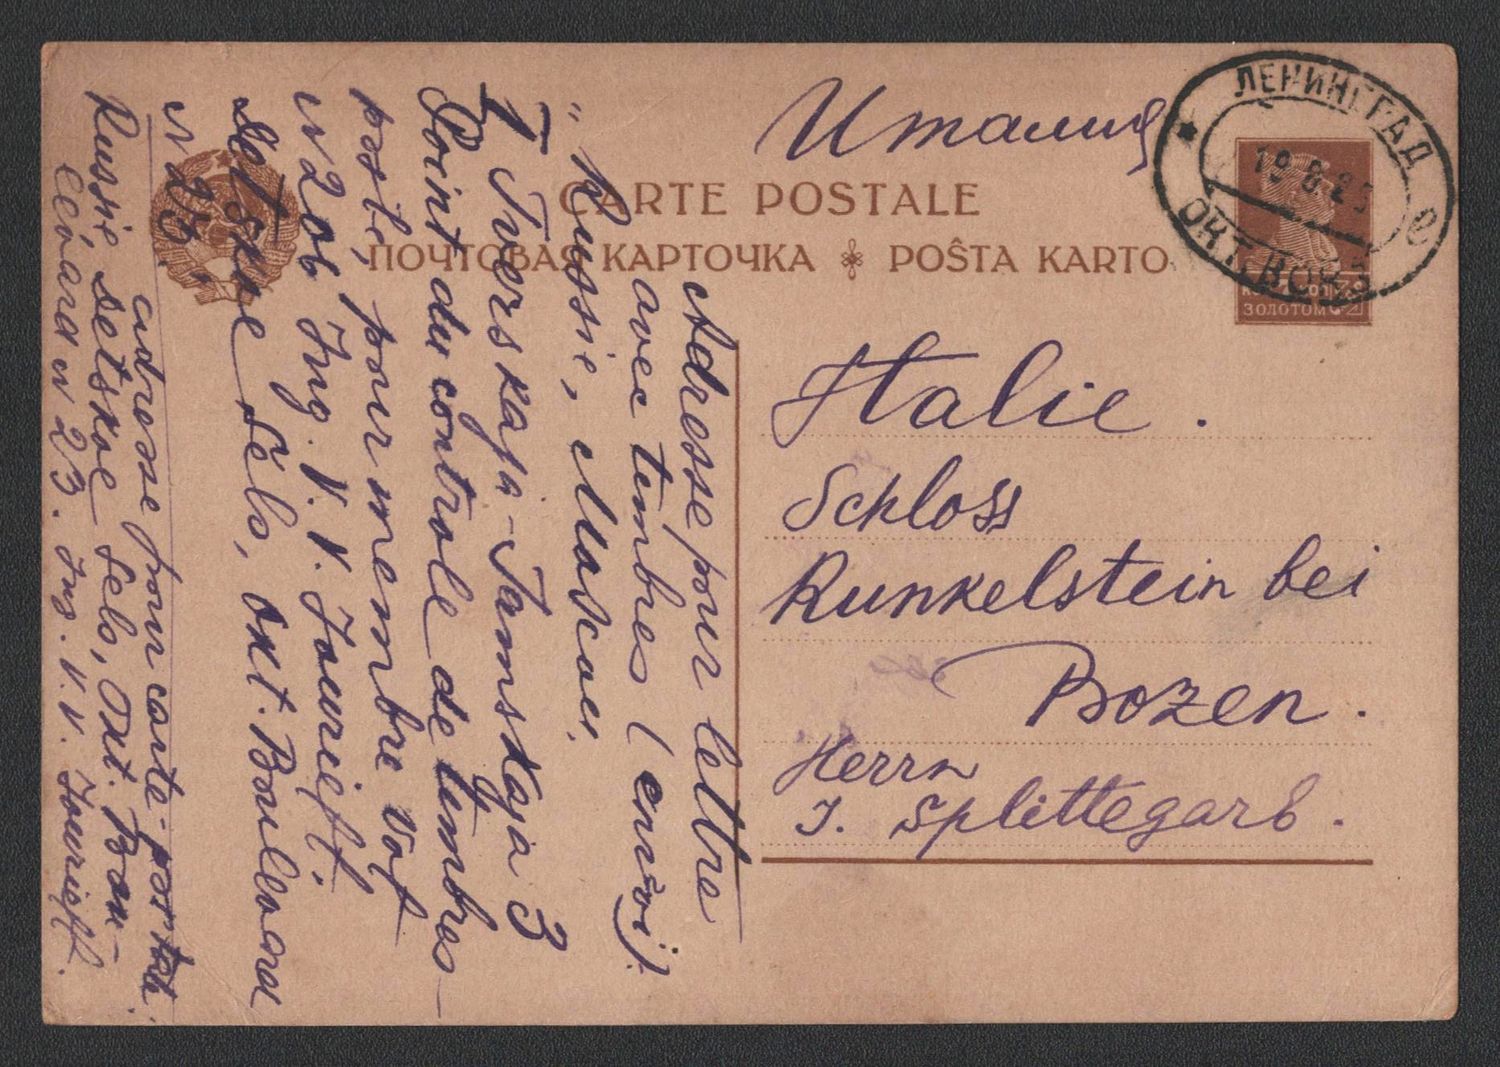 Италия
CARTE POSTALE
ПОЧТОВАЯ КАРТОЧКА ❉ POŜTA KARTO
ЛЕНИНГРАД
19 8 2
ОКТ. ВОКЗ
ЗОЛОТОМ
Italie.
Schloss
Runkelstein bei
Bozen.
Herrn
J. Splittegarb.
Adresse pour lettre
avec timbres (envoj).
"Russie, Moscou,
1 Tverskaja-Jamskaja 3
Point du controle de timbres-
poste, pour membre vof
N 206 Ing. V. V. Jourieff.
Detskoe Selo, Okt. Boulevard
N 23.
adresse pour carte-postal:
Russie Detskoe Selo, Okt. Bou-
levard N 23. Ing. V. V. Jourieff.